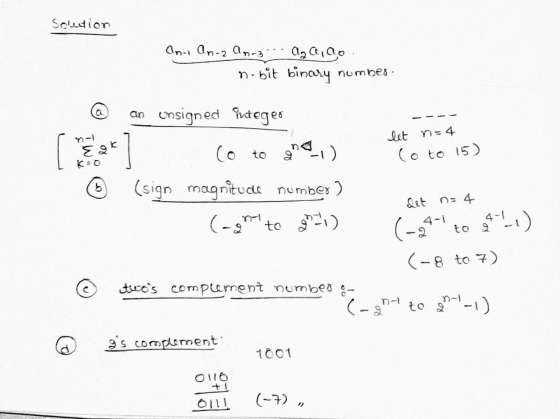 Solution
aₙ₋₁ aₙ₋₂ aₙ₋₃ ··· a₂ a₁ a₀.
n-bit binary number.
(a) an unsigned integer
[ n-1 Σ k=0 2^k ] (0 to 2^n -1)
----
let n=4
(0 to 15)
(b) (sign magnitude number)
(-2^n-1 to 2^n-1 -1)
let n=4
(-2^4-1 to 2^4-1 -1)
(-8 to 7)
(c) two's complement number :-
(-2^n-1 to 2^n-1 -1)
(d) 2's complement.
1001
0110
+1
0111 (-7) „